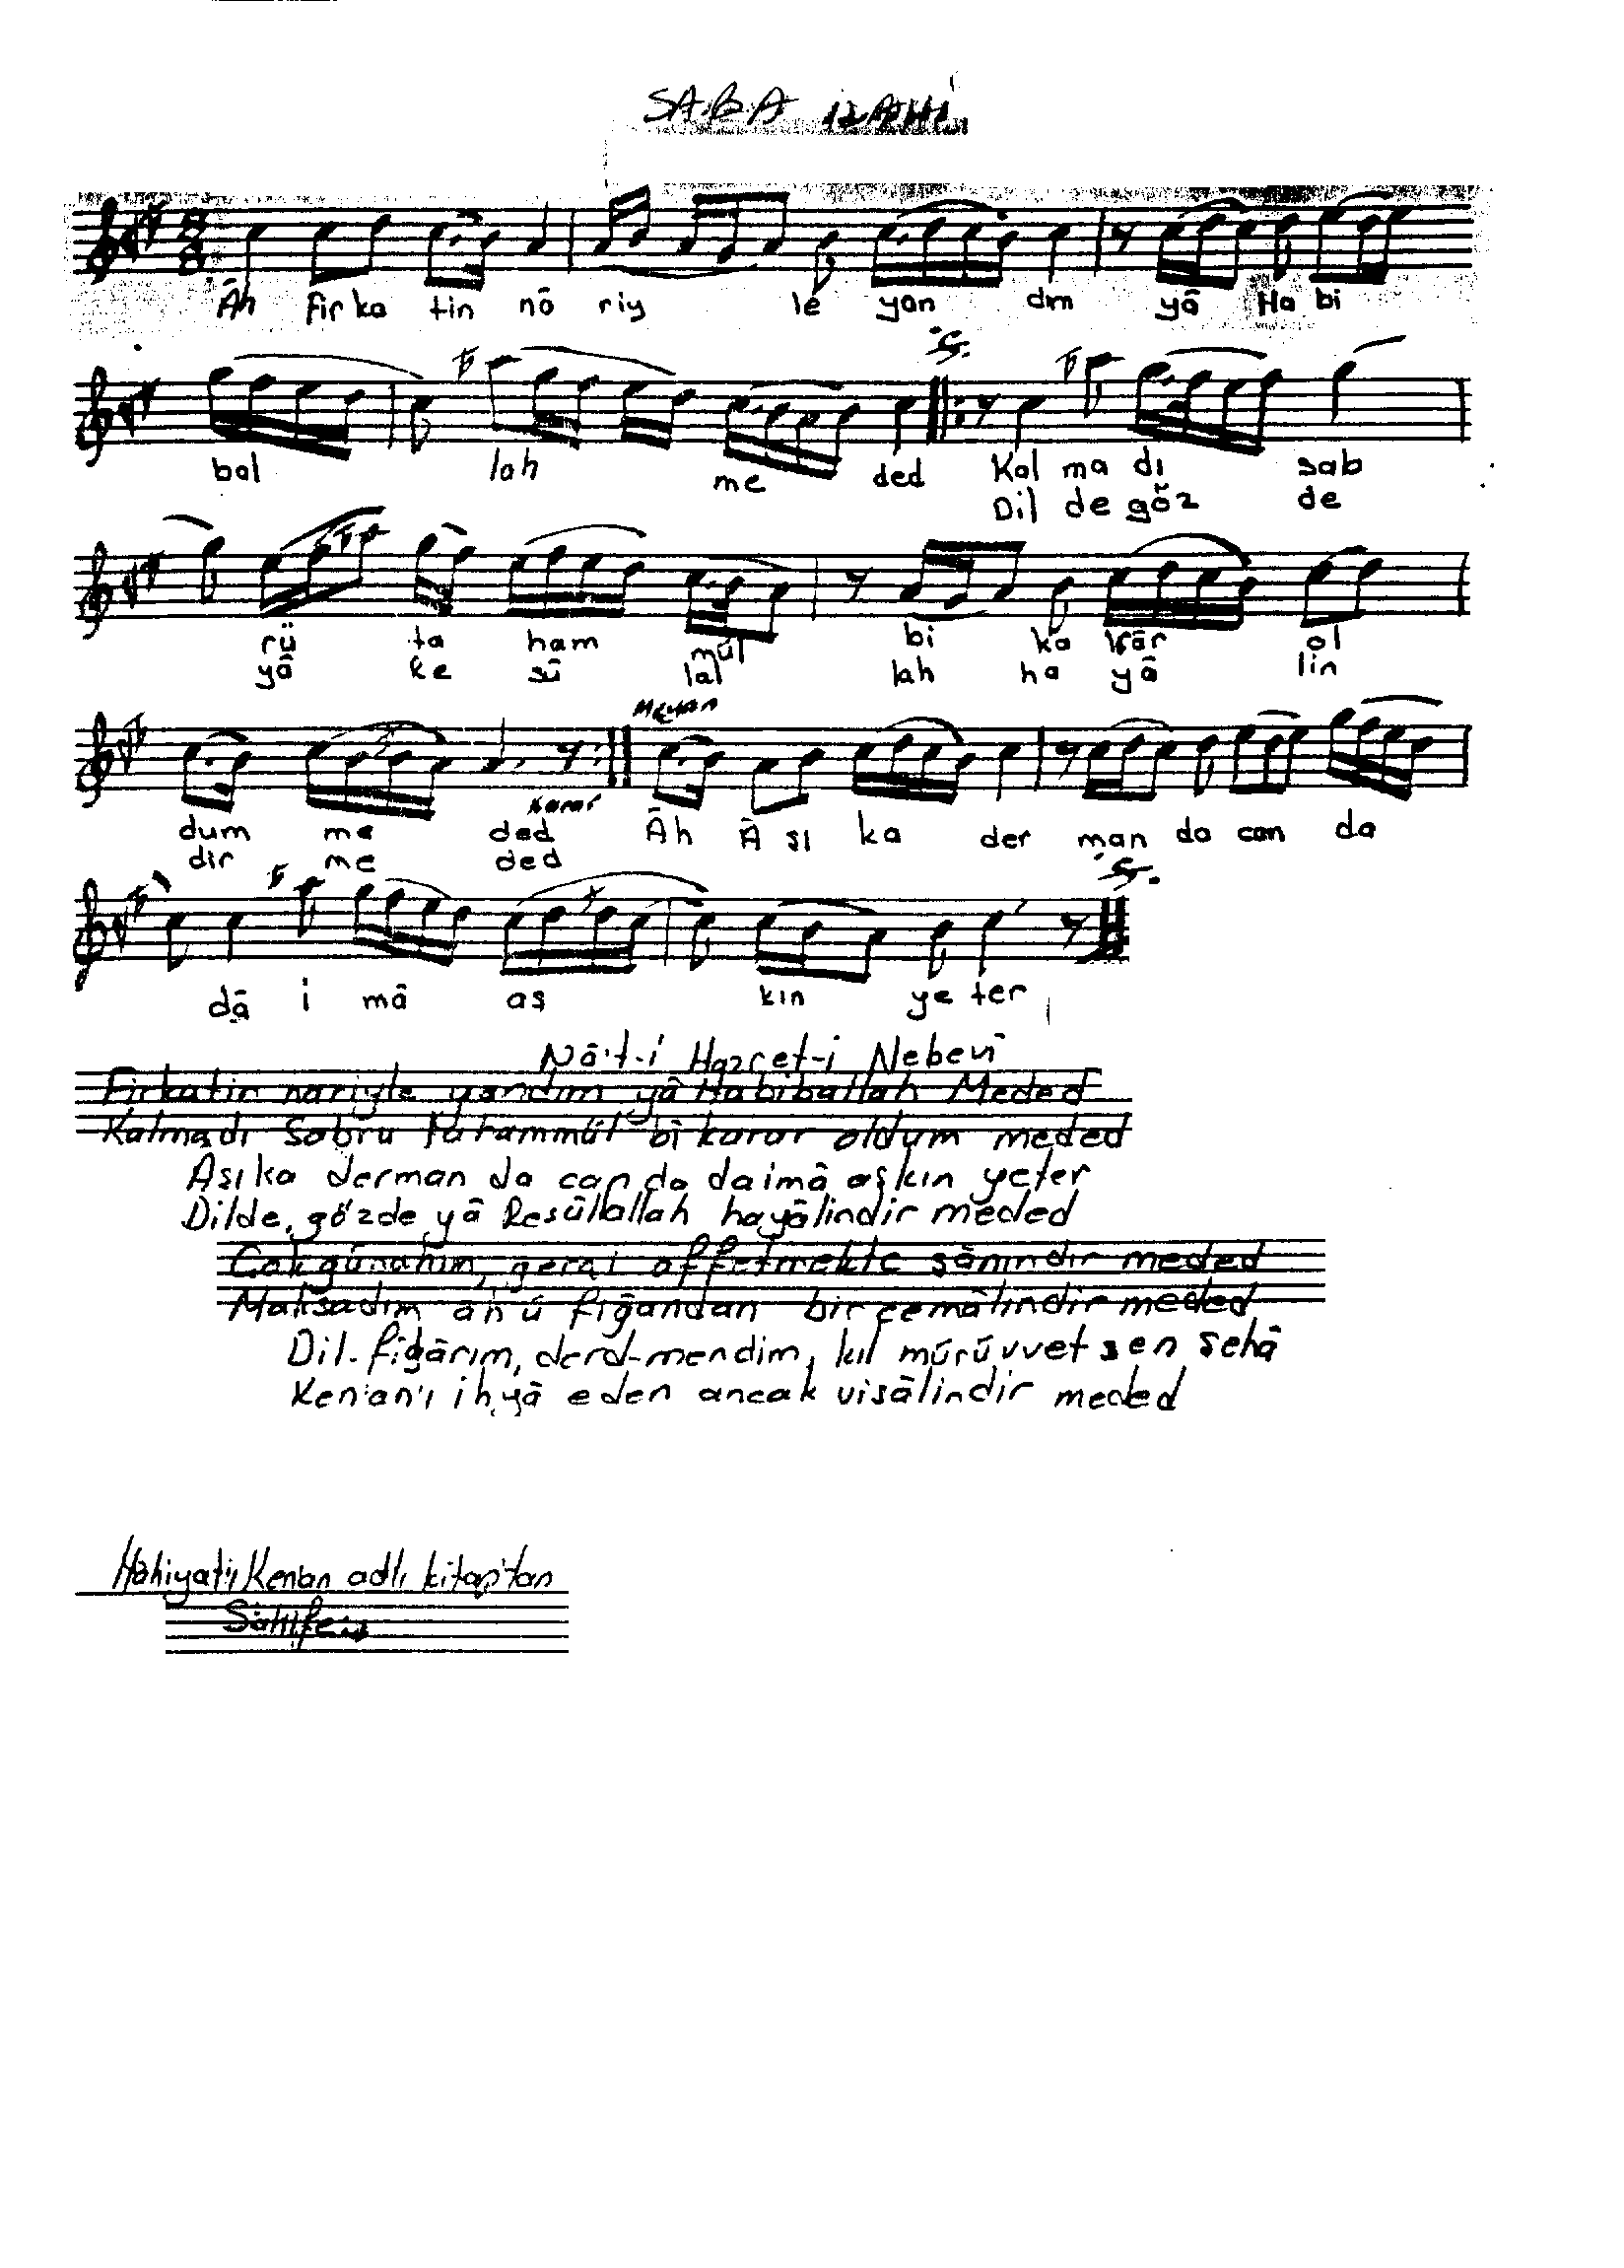 SABA İLAHİ
Âh fir ka tin nâ riy le yan dım yâ Ha bi
bal lah me ded Kal ma dı sab
Dil de göz de
rü ta ham mül bi ka rar ol
yâ Re sû lal lah ha yâ lin
Meyan
dum me ded Karar Âh Â şı ka der man da can da
dir me ded
dâ i mâ aş kın ye ter
Nâ't-i Hazret-i Nebevî
Firkatin nariyle yandım yâ Habiballah Meded
Kalmadı Sabru tahammül bî karar oldum meded
Aşıka derman da can da daimâ aşkın yeter
Dilde, gözde yâ Resûllallah hayâlindir meded
Çok günahım, gerçi affetmekle şânındır meded
Maksadım ah ü fiğandan bir cemâlindir meded
Dil-figârım, derd-mendim, kıl mürüvvet sen şehâ
Ken'an'ı ihyâ eden ancak visâlindir meded
Kenan adlı kitap'tan